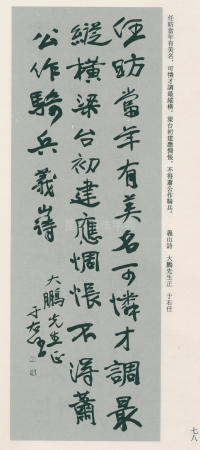 任昉當年有美名，可憐才調最縱橫。梁台初建應惆悵，不得蕭公作騎兵。　義山詩　大鵬先生正　于右任
任昉當年有美名可憐才調最
縱橫梁台初建應惆悵不得蕭
公作騎兵義山詩
大鵬先生正
于右任
七八